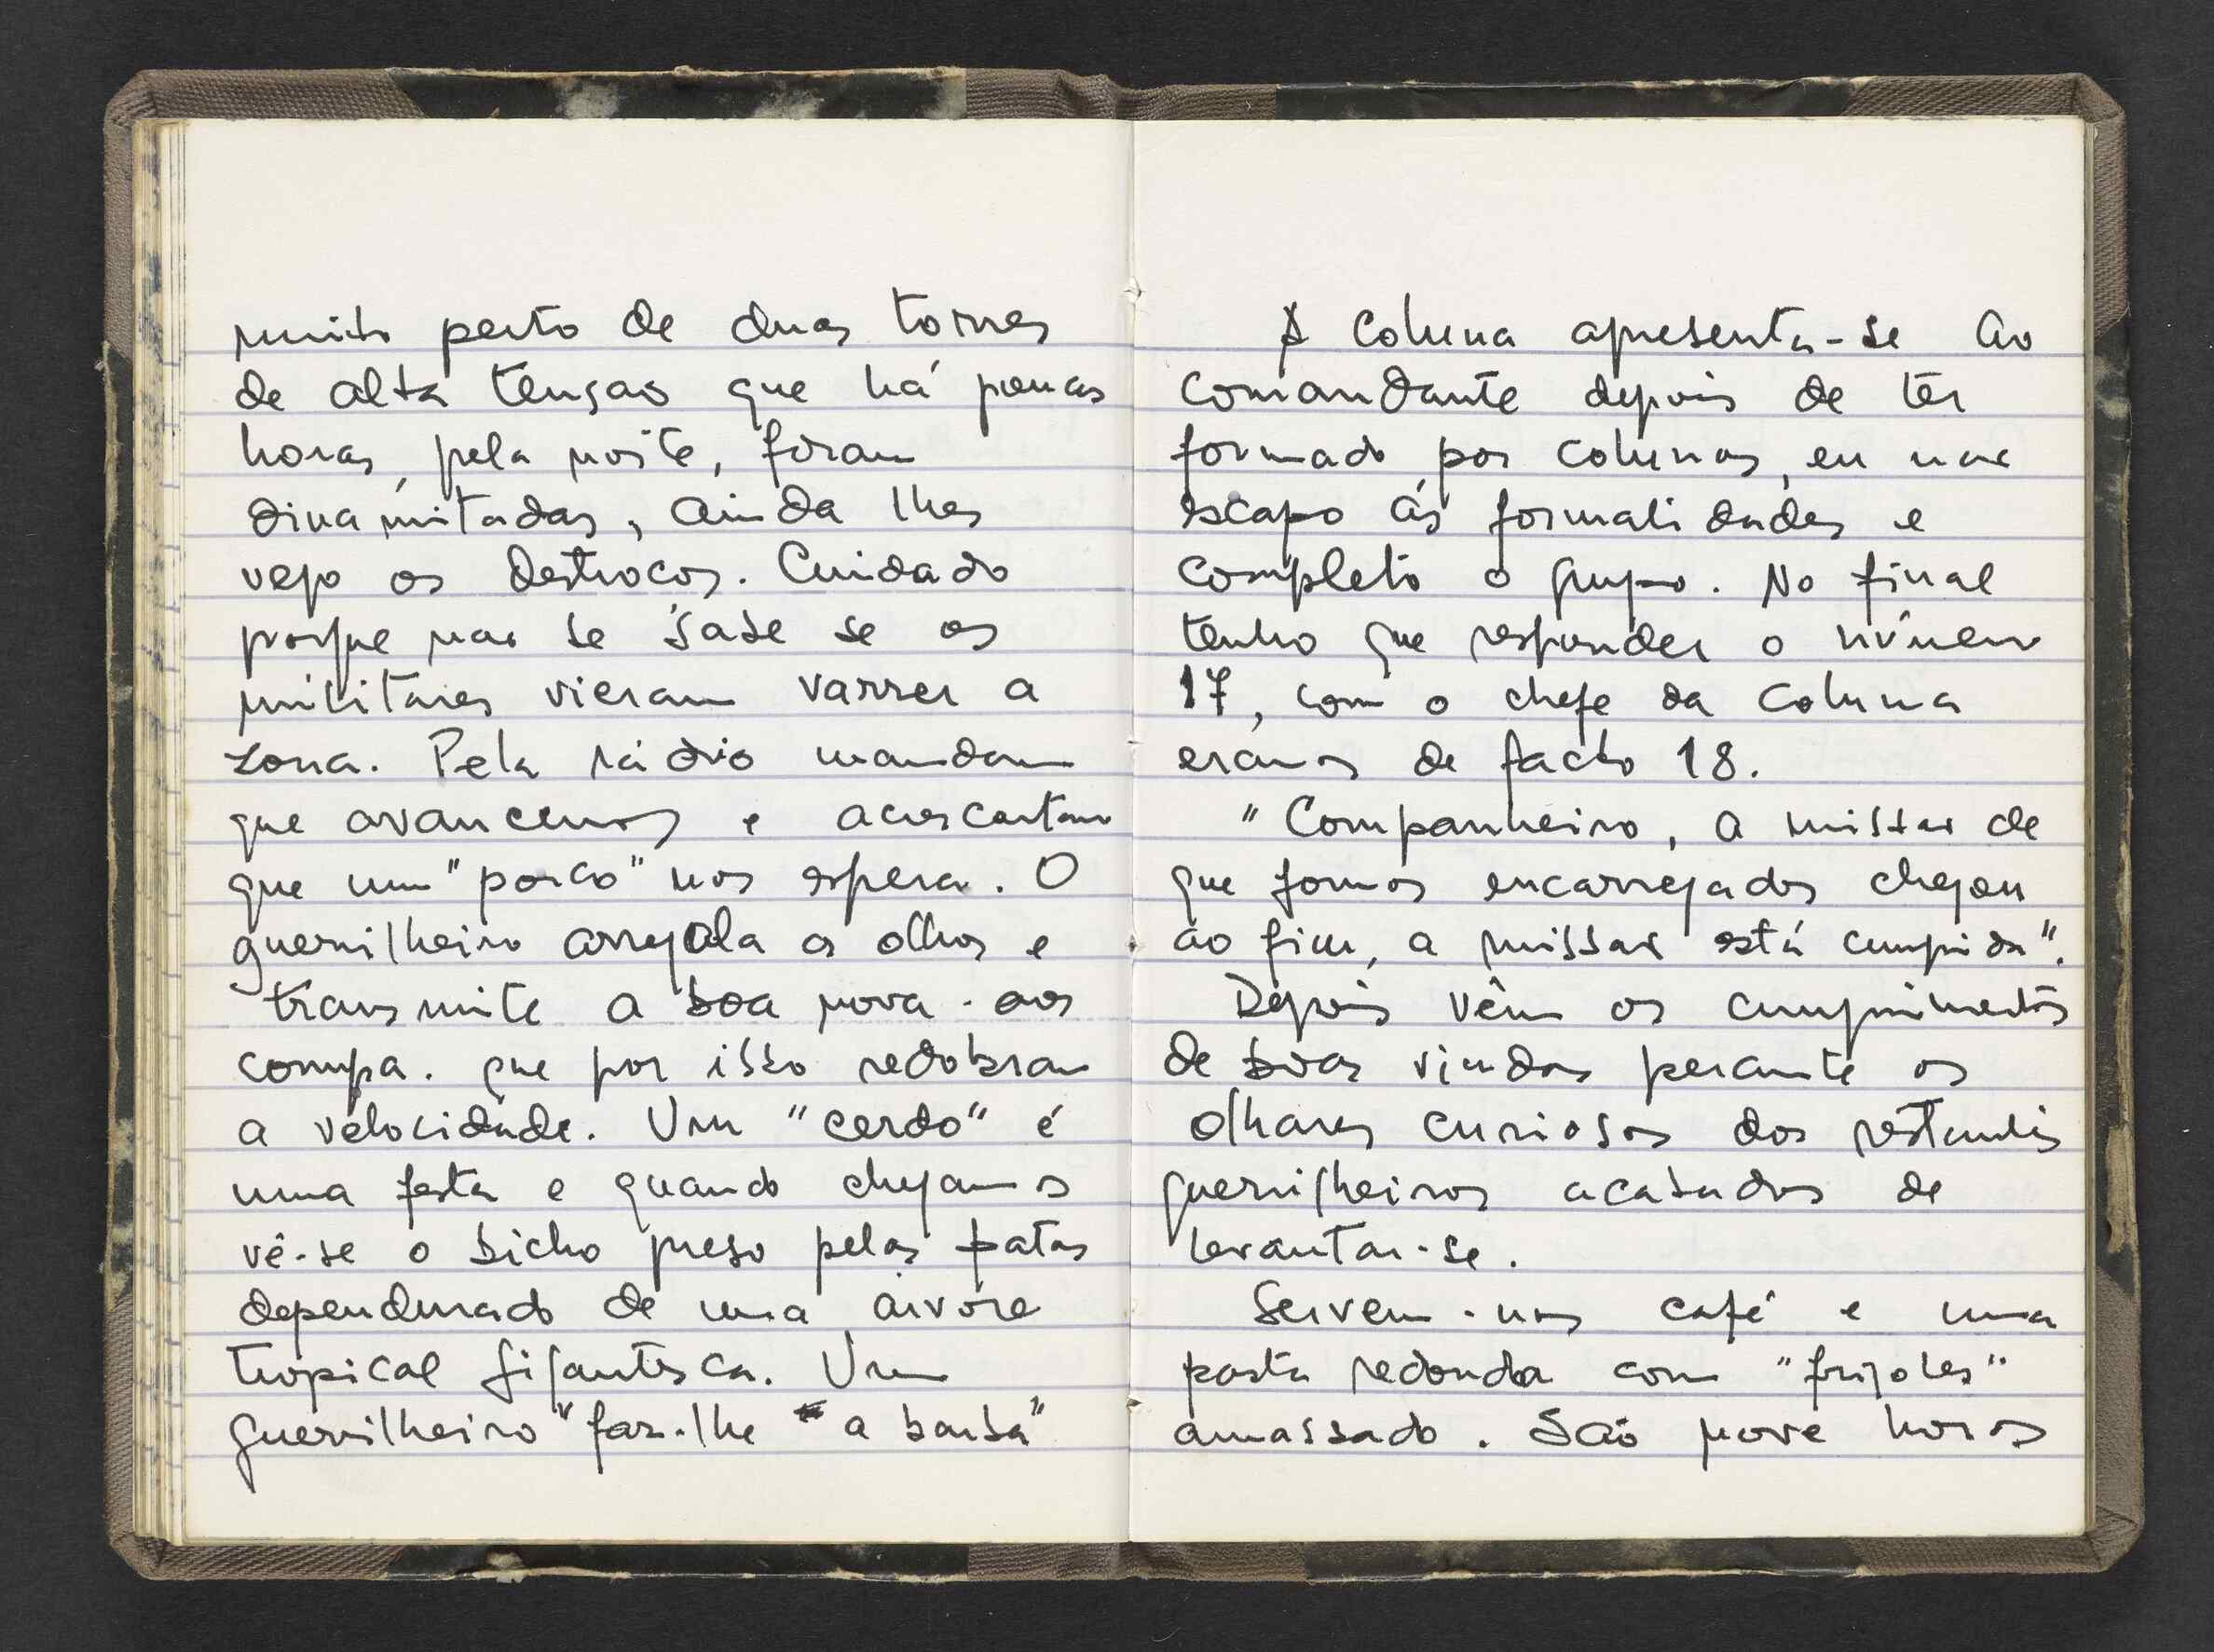 muito perto de duas torres
de alta tensao que há poucas
horas, pela noite, foram
dinamitadas, ainda lhes
vejo os destroços. Cuidado
porque nao se sabe se os
militares vieram varrer a
zona. Pela rádio mandam
que avancemos e acrescentam
que um "porco" nos espera. O
guerrilheiro arregala os olhos e
transmite a boa nova aos
compa. que por isso redobram
a velocidade. Um "cerdo" é
uma festa e quando chegamos
vê-se o bicho preso pelas patas
dependurado de uma árvore
tropical gigantesca. Um
guerrilheiro "faz-lhe a barba"
A coluna apresenta-se ao
comandante depois de ter
formado por colunas, eu nao
escapo às formalidades e
completo o grupo. No final
tenho que responder o número
17, com o chefe da coluna
eramos de facto 18.
"Companheiro, a missao de
que fomos encarregados chegou
ao fim, a missao está cumprida".
Depois vêm os cumprimentos
de boas vindas perante os
olhares curiosos dos restantes
guerrilheiros acabados de
levantar-se.
Servem-nos café e uma
pasta redonda com "frijoles"
amassado. Sao nove horas